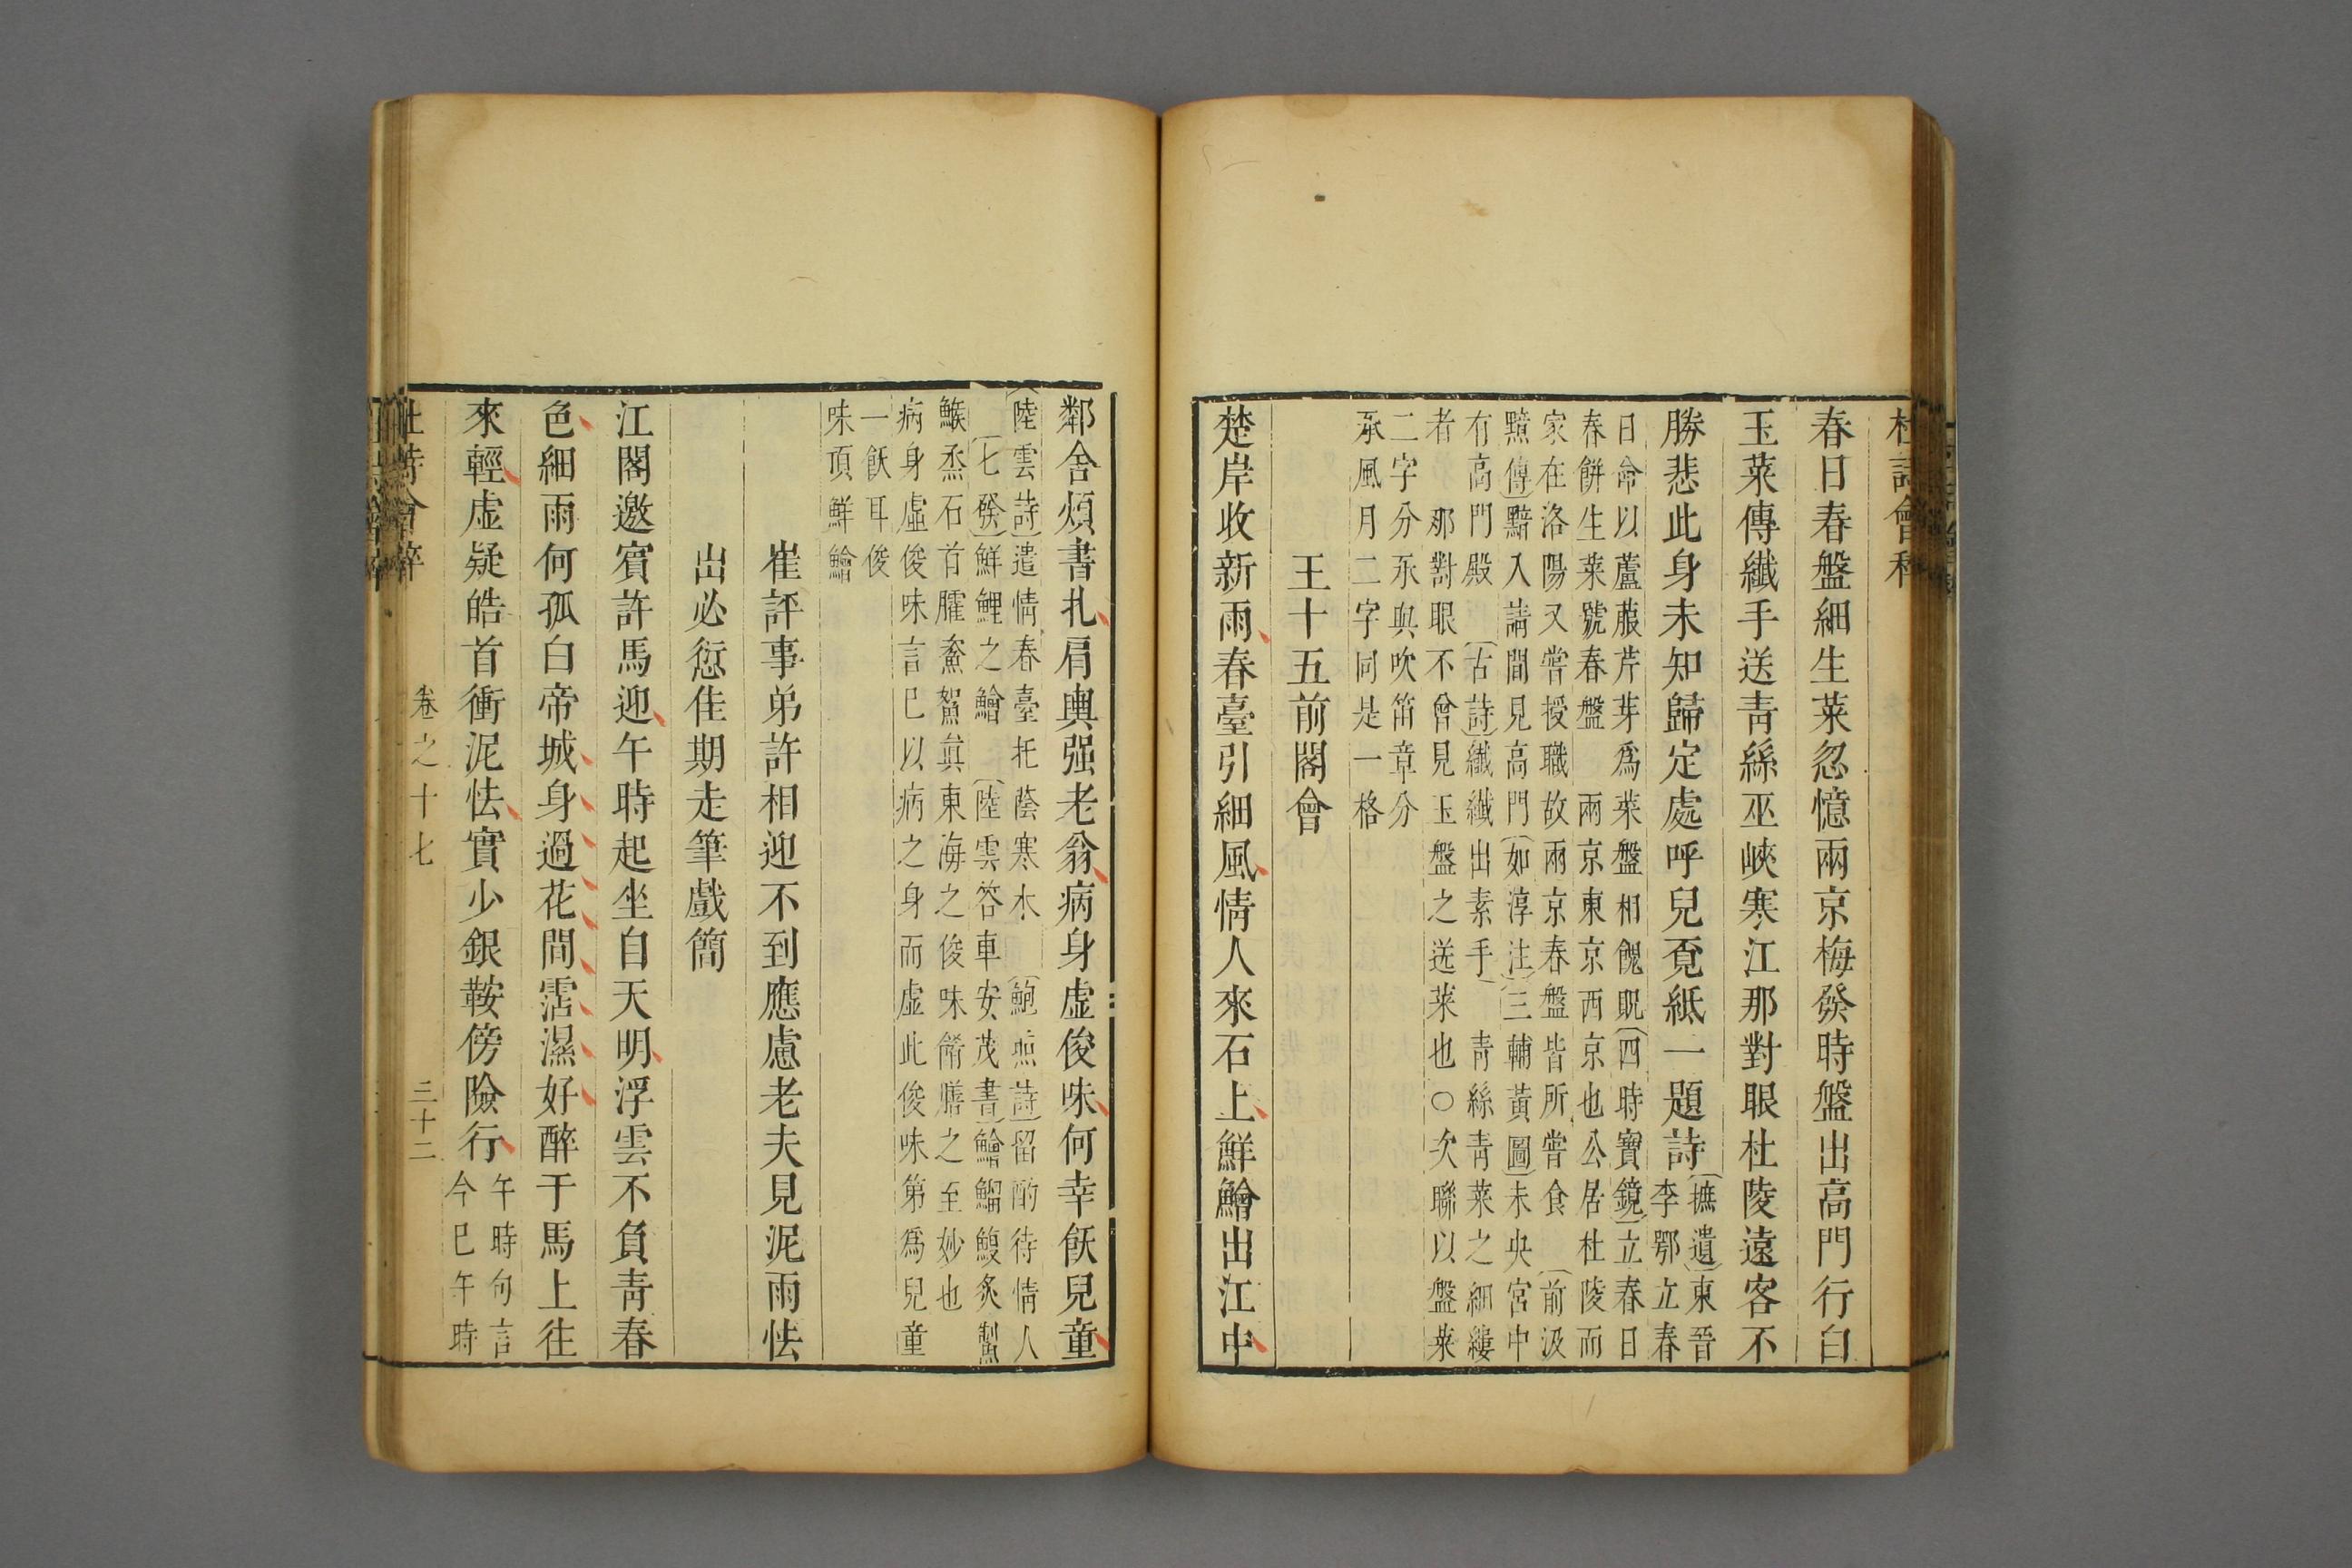 杜詩會稡
春日春盤細生菜忽憶兩京梅發時盤出高門行白
玉菜傳纖手送青絲巫峽寒江那對眼杜陵遠客不
勝悲此身未知歸定處呼兒覓紙一題詩
摭遺東晉
李鄂立春
日命以蘆菔芹芽爲菜盤相餽貺四時寶鏡立春日
春餅生菜號春盤 兩京東京西京也公居杜陵而
家在洛陽又嘗授職故兩京春盤皆所嘗食 前汲
黯傳黯入請間見高門如淳注三輔黃圖未央宮中
有高門殿 古詩纖纖出素手 青絲青菜之細縷
者 那對眼不曾見玉盤之送菜也○次聯以盤菜
二字分承與吹笛章分
承風月二字同是一格
王十五前閣會
楚岸收新雨春臺引細風情人來石上鮮鱠出江中
鄰舍煩書扎肩輿强老翁病身虛俊味何幸飫兒童
陸雲詩遣情春臺托蔭寒木 鮑照詩留酌待情人
七發鮮鯉之鱠 陸雲答車安茂書鱠鰡鰒炙製
鯸烝石首臛鴽眞東海之俊味餚膳之至妙也
病身虛俊味言已以病之身而虛此俊味第爲兒童
一飫耳俊
味頂鮮鱠
崔評事弟許相迎不到應慮老夫見泥雨怯
出必愆佳期走筆戲簡
江閣邀賓許馬迎午時起坐自天明浮雲不負青春
色細雨何孤白帝城身過花間霑濕好醉于馬上往
來輕虛疑皓首衝泥怯實少銀鞍傍險行
午時句言
今已午時
卷之十七
三十二